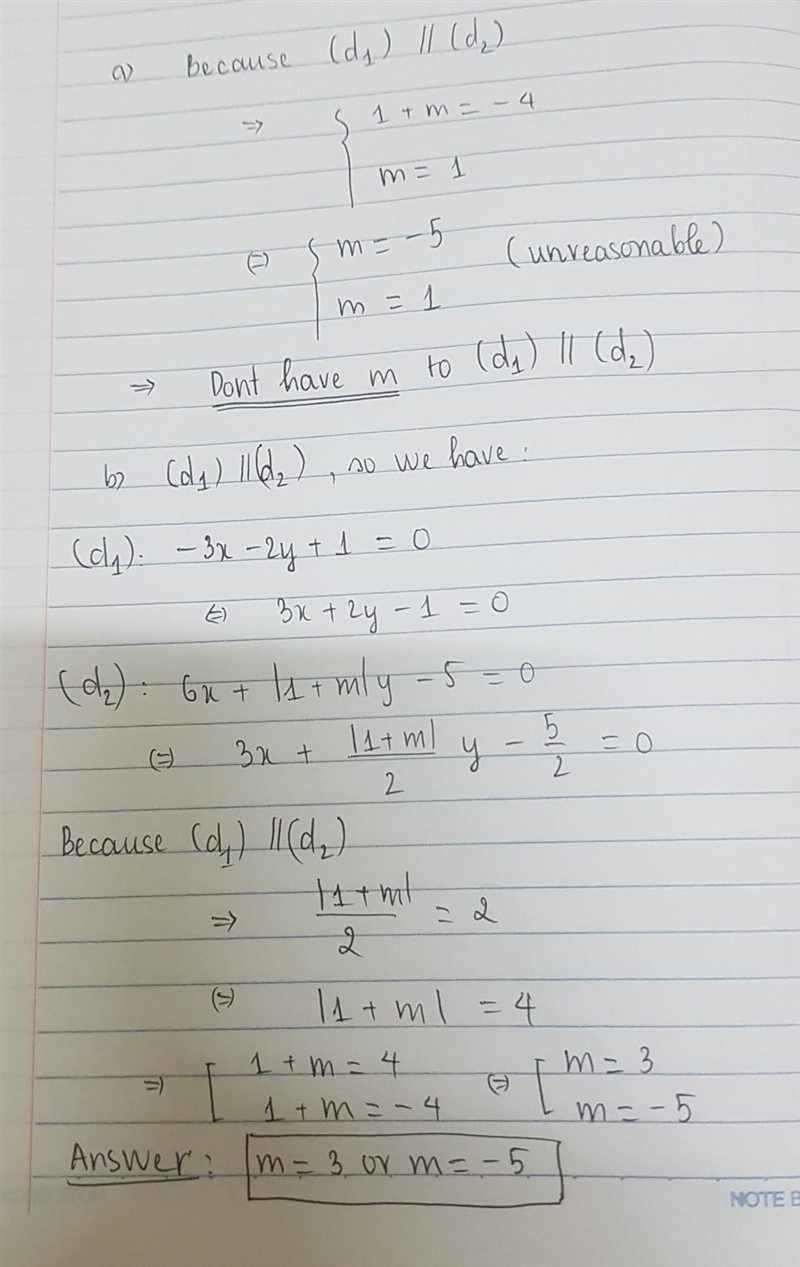 a) Because (d₁) // (d₂)
=> { 1 + m = - 4
m = 1
(=) { m = -5 (unreasonable)
m = 1
=> Dont have m to (d₁) // (d₂)
b) (d₁) //(d₂) , so we have :
(d₁): -3x - 2y + 1 = 0
(=) 3x + 2y - 1 = 0
(d₂) : 6x + |1 + m|y - 5 = 0
(=) 3x + |1+m|/2 y - 5/2 = 0
Because (d₁) //(d₂)
=> |1+m|/2 = 2
(=) |1 + m| = 4
=> [ 1 + m = 4 (=) [ m = 3
1 + m = - 4 m = - 5
Answer : m = 3 or m = - 5
NOTE B